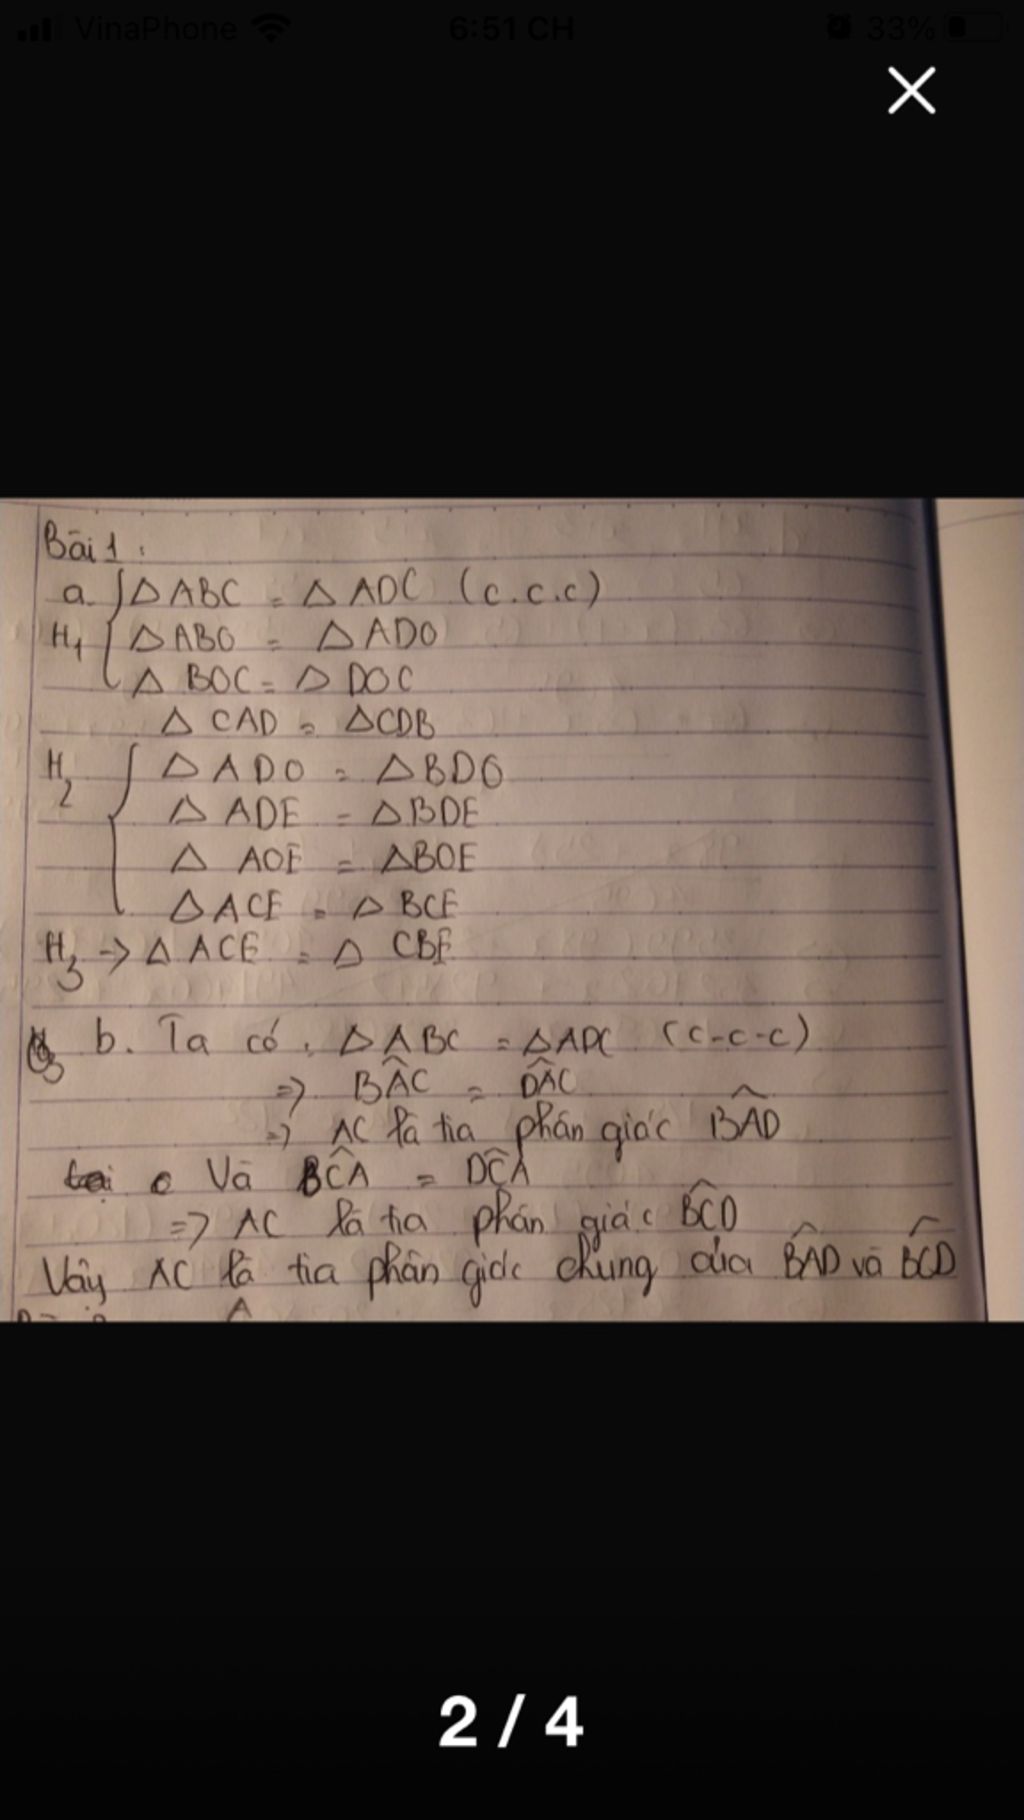 VinaPhone 6:51 CH 33%
Bài 1:
a. △ ABC = △ ADC (c.c.c)
H1 △ ABO = △ ADO
△ BOC = △ DOC
△ CAD = △CDB
H2 △ ADO = △BDO
△ ADE = △BDE
△ AOE = △BOE
△ACE = △ BCE
H3 → △ ACE = △ CBE
b. Ta có: △ABC = △ADC (c-c-c)
=> BÂC = DÂC
=> AC là tia phân giác BÂD
Và BĈA = DĈA
=> AC là tia phân giác BĈD
Vậy AC là tia phân giác chung của BÂD và BĈD
2 / 4